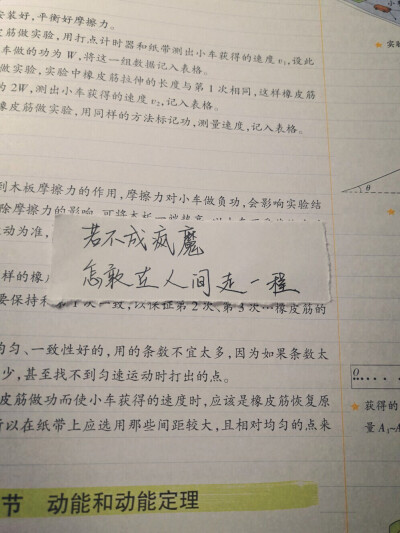 安装好,平衡好摩擦力。
皮筋做实验,用打点计时器和纸带测出小车获得的速度v₁,设此
车做的功为W,将这一组数据记入表格。
做实验,实验中橡皮筋拉伸的长度与第1次相同,这样橡皮筋
为2W,测出小车获得的速度v₂,记入表格。
橡皮筋做实验,用同样的方法标记功,测量速度,记入表格。
到木板摩擦力的作用,摩擦力对小车做负功,会影响实验结
除摩擦力的影响,可将木板一端
动为准,
若不成疯魔
怎敢在人间走一程
样的橡
要保持和第1次一致,以保证第2次、第3次…橡皮筋的
匀、一致性好的,用的条数不宜太多,因为如果条数太
少,甚至找不到匀速运动时打出的点。
皮筋做功而使小车获得的速度时,应该是橡皮筋恢复原
所以在纸带上应选用那些间距较大,且相对均匀的点来
节 动能和动能定理
★ 实
θ
★
O
★ 获得的
量A₁~A